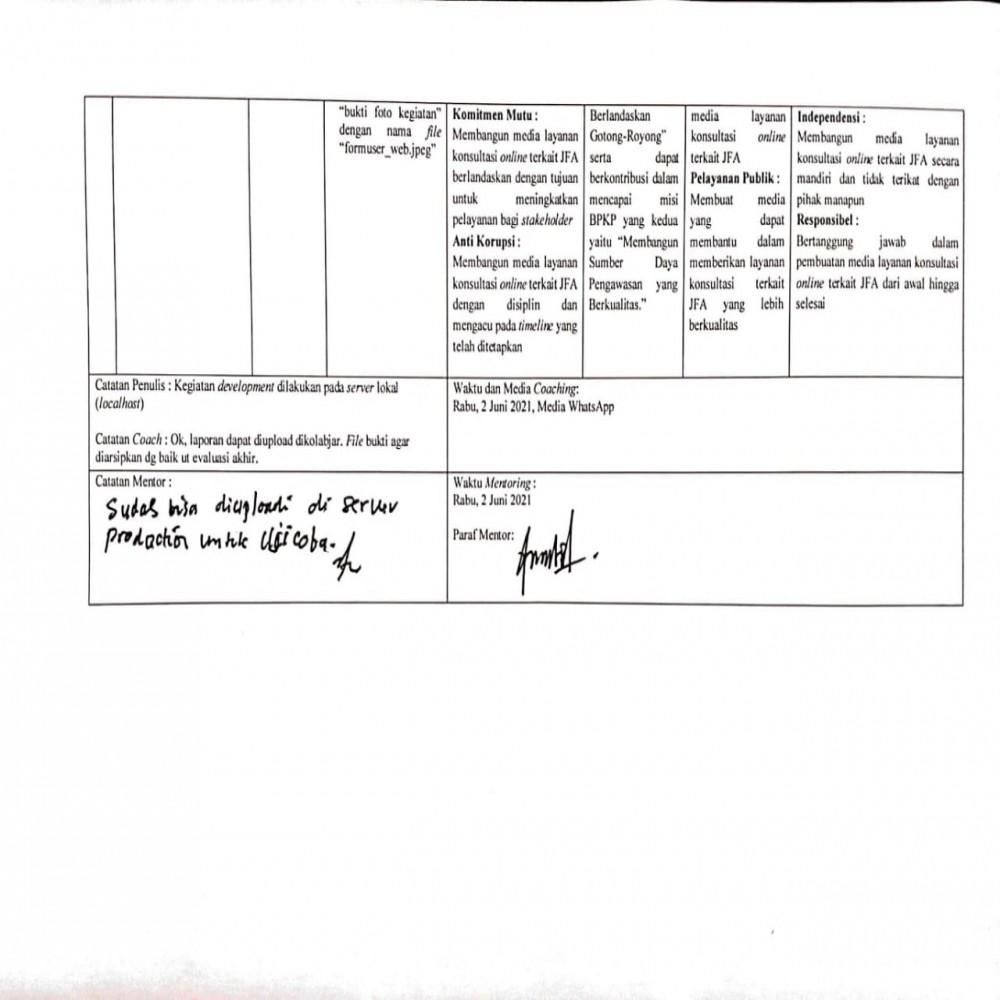 "bukti foto kegiatan"
dengan nama file
"formuser_web.jpeg"
Komitmen Mutu :
Membangun media layanan
konsultasi online terkait JFA
berlandaskan dengan tujuan
untuk meningkatkan
pelayanan bagi stakeholder
Anti Korupsi :
Membangun media layanan
konsultasi online terkait JFA
dengan disiplin dan
mengacu pada timeline yang
telah ditetapkan
Berlandaskan
Gotong-Royong"
serta dapat
berkontribusi dalam
mencapai misi
BPKP yang kedua
yaitu "Membangun
Sumber Daya
Pengawasan yang
Berkualitas."
media layanan
konsultasi online
terkait JFA
Pelayanan Publik :
Membuat media
yang dapat
membantu dalam
memberikan layanan
konsultasi terkait
JFA yang lebih
berkualitas
Independensi :
Membangun media layanan
konsultasi online terkait JFA secara
mandiri dan tidak terikat dengan
pihak manapun
Responsibel :
Bertanggung jawab dalam
pembuatan media layanan konsultasi
online terkait JFA dari awal hingga
selesai
Catatan Penulis : Kegiatan development dilakukan pada server lokal
(localhost)
Catatan Coach : Ok, laporan dapat diupload dikolabjar. File bukti agar
diarsipkan dg baik ut evaluasi akhir.
Waktu dan Media Coaching:
Rabu, 2 Juni 2021, Media WhatsApp
Catatan Mentor :
Sudah bisa diupload di server
production untuk Ujicoba.
Waktu Mentoring :
Rabu, 2 Juni 2021
Paraf Mentor: